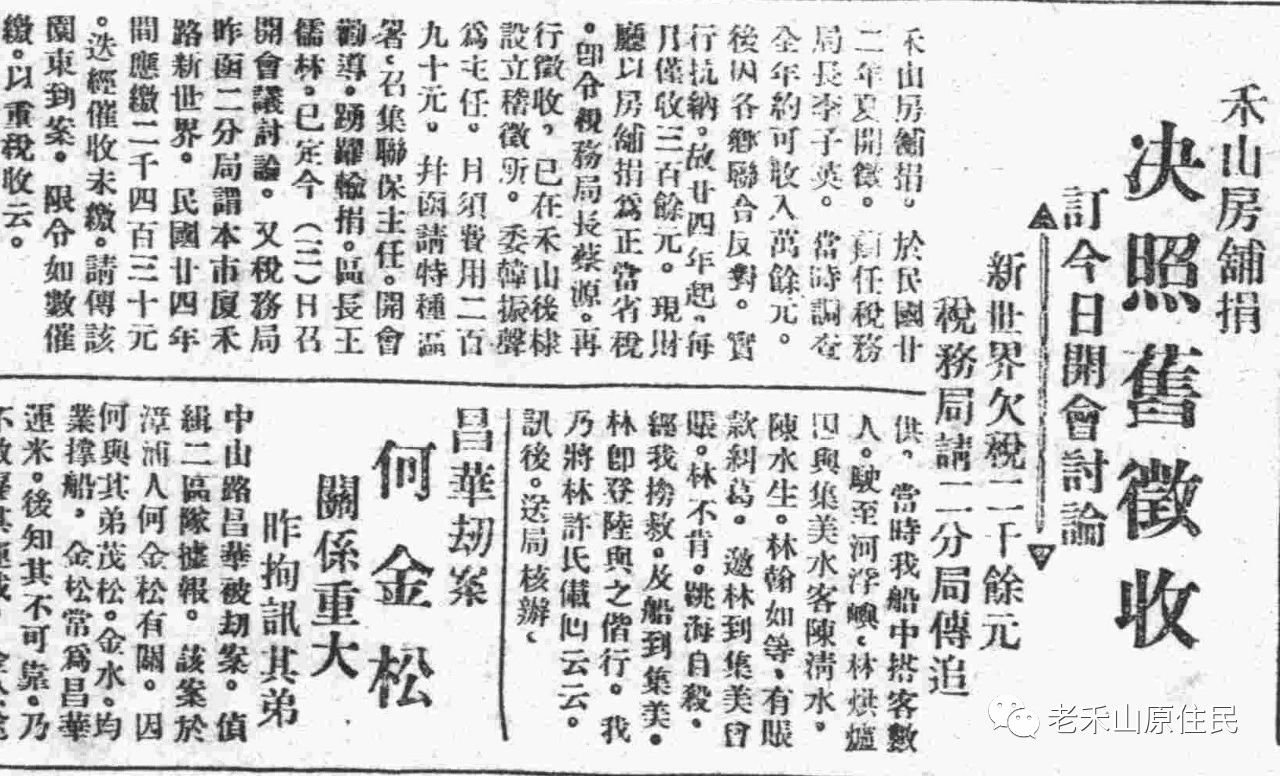 禾山房舖捐
决照舊徵收
訂今日開會討論
新世界欠稅二千餘元
稅務局請二分局傳追
禾山房舖捐。於民國廿
二年夏開徵。前任稅務
局長李子英。當時調查
全年約可收入萬餘元。
後因各鄉聯合反對。實
行抗納。故廿四年起。每
月僅收三百餘元。現財
廳以房舖捐爲正當省稅
。卽令稅務局長蔡源。再
行徵收。已在禾山後埭
設立稽徵所。委韓振聲
爲主任。月須費用二百
九十元。幷函請特種區
署、召集聯保主任。開會
勸導。踴躍輸捐。區長王
儒林。已定今(三)日召
開會議討論。又稅務局
昨函二分局謂本市厦禾
路新世界。民國廿四年
間應繳二千四百三十元
。迭經催收未繳。請傳該
園東到案。限令如數催
繳。以重稅收云。
供、當時我船中搭客數
人。駛至河浮嶼、林烘爐
因與集美水客陳淸水。
陳水生。林翰如等、有賬
款糾葛。邀林到集美會
賬。林不肯。跳海自殺、
經我撈救。及船到集美。
林卽登陸與之偕行。我
乃將林許氏儎回云云。
訊後。送局核辦、
昌華刼案
何金松
關係重大
昨拘訊其弟
中山路昌華被刼案。偵
緝二區隊據報。該案於
漳浦人何金松有關。因
何與其弟茂松。金水。均
業撑船，金松常爲昌華
運米。後知其不可靠。乃
老禾山原住民